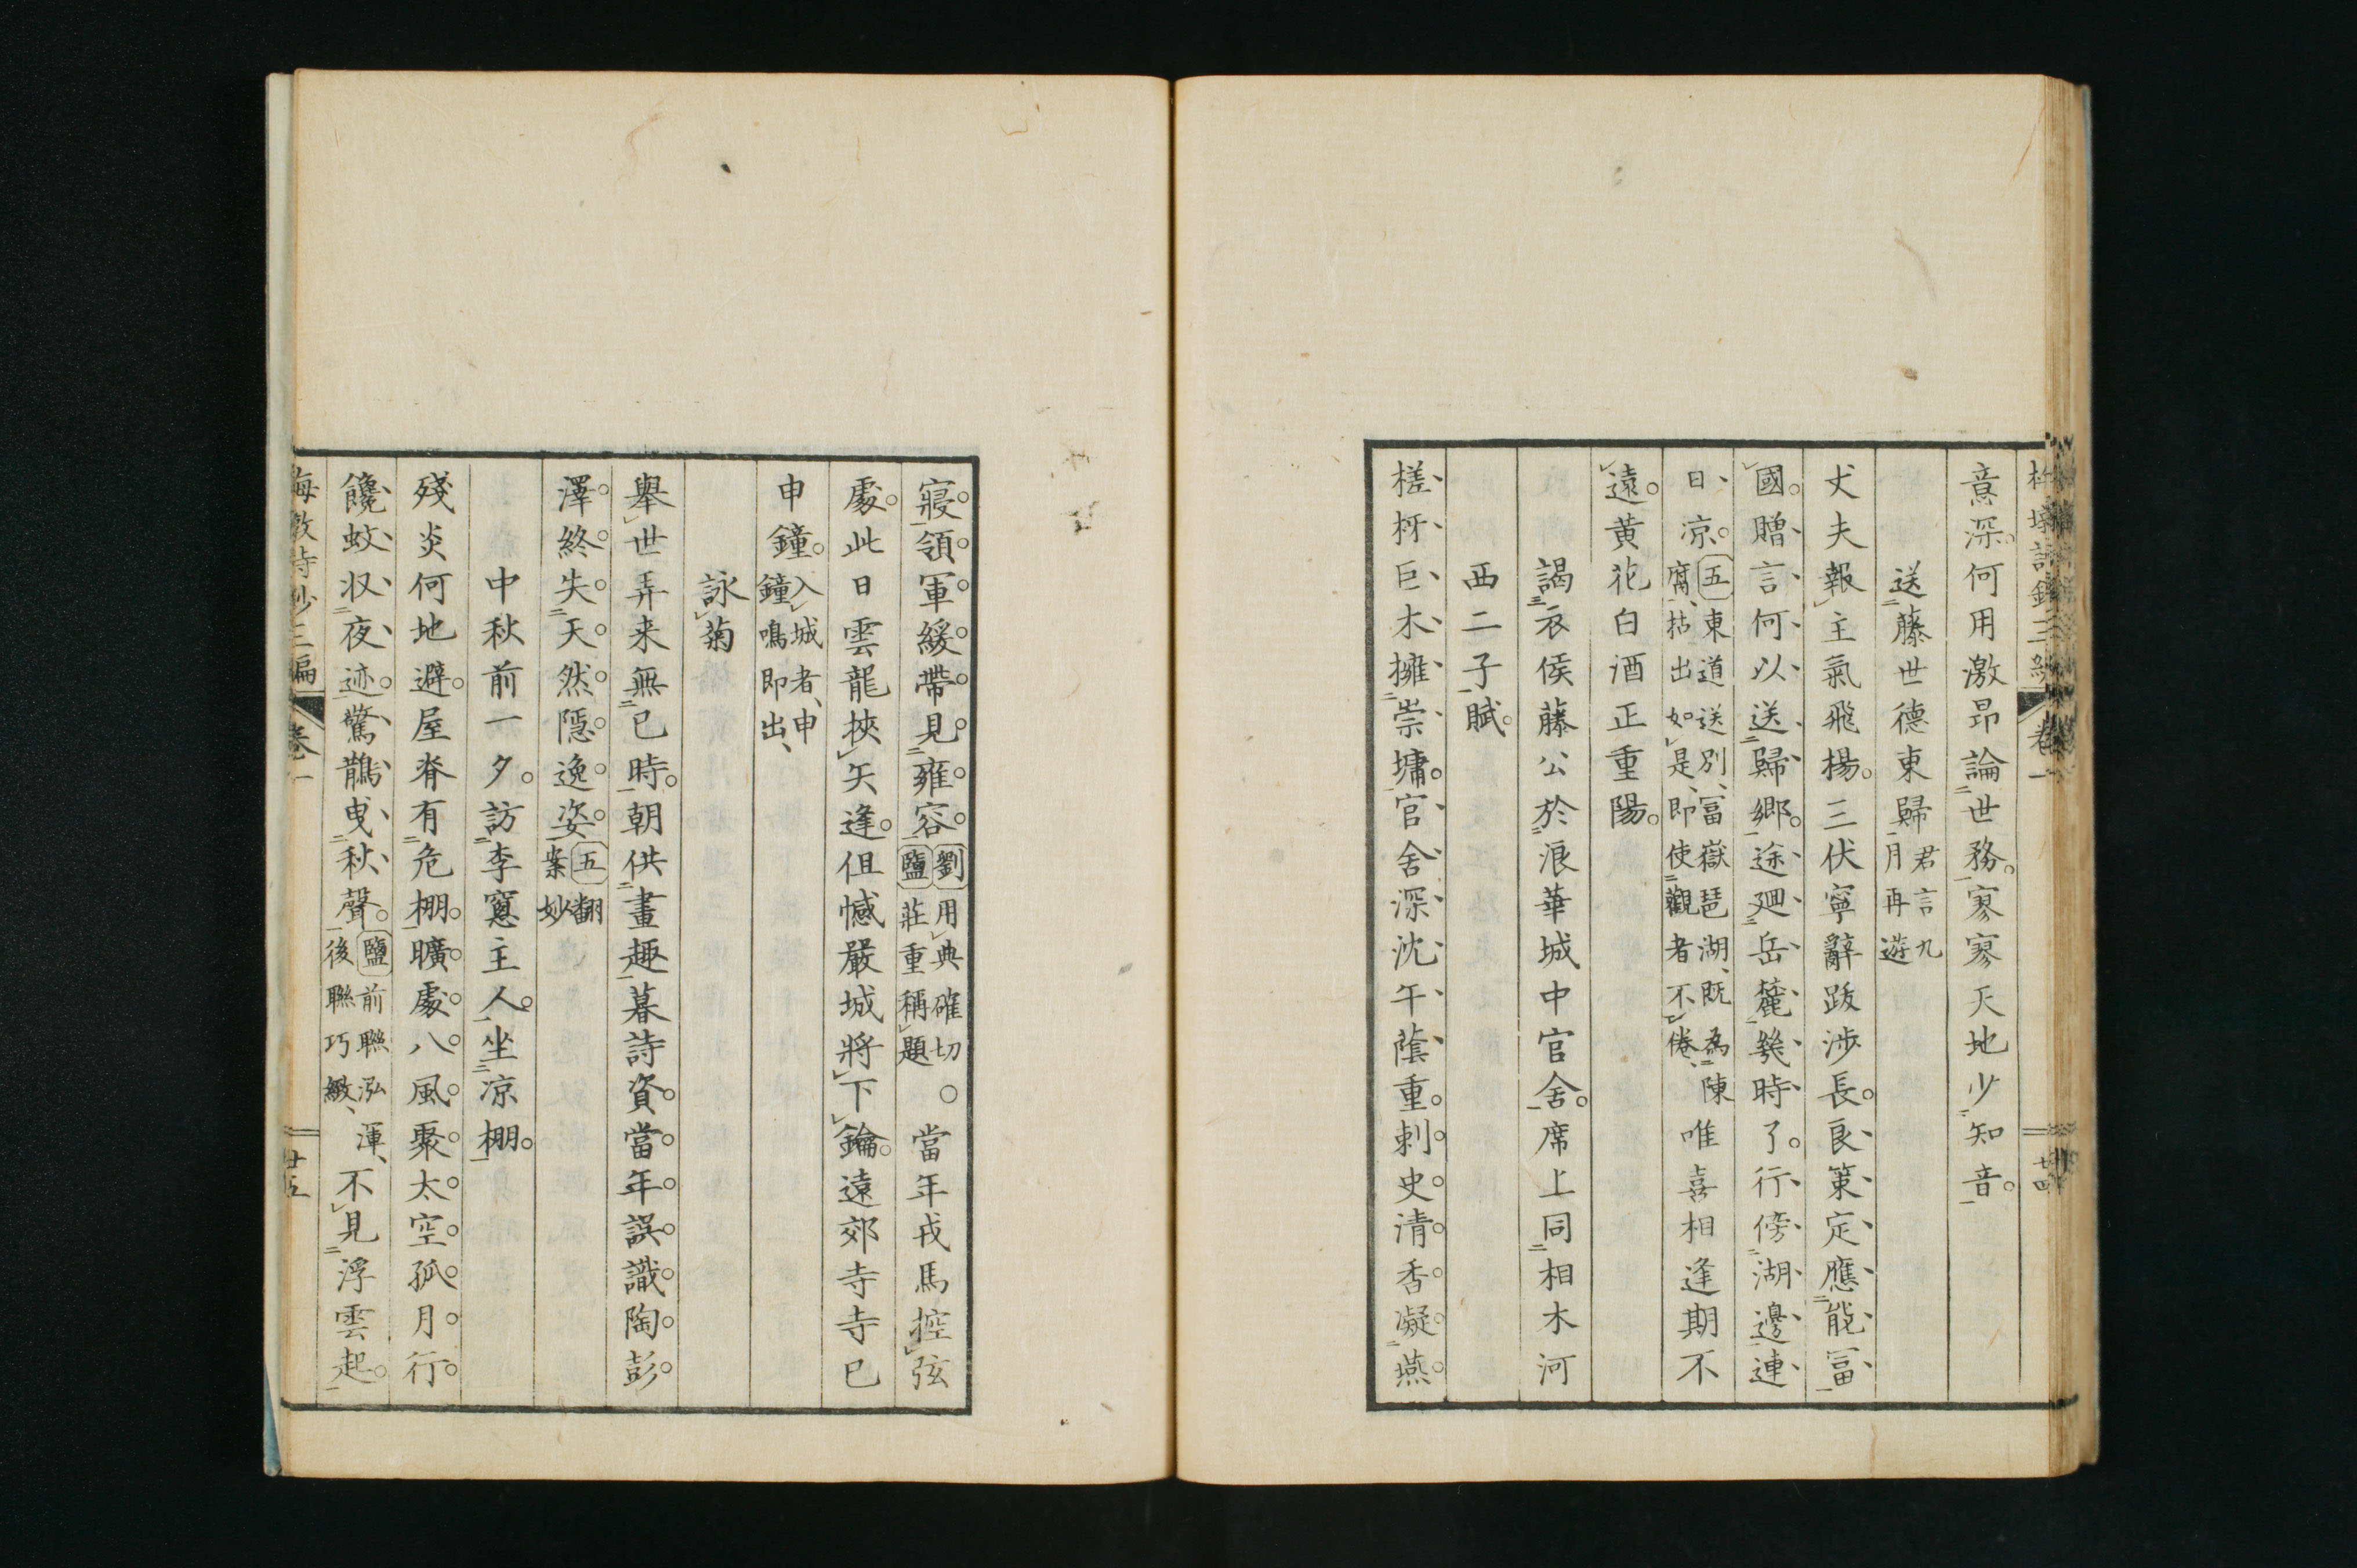 意深何用激昂論世務寥寥天地少知音
送藤世德東歸君言九月再遊
丈夫報主氣飛揚三伏寧辭跋涉長良策定應能富
國贈言何以送歸鄉途廻岳麓幾時了行傍湖邊連
日凉五東道送別富嶽琵湖既為陳腐拈出如是即使觀者不倦唯喜相逢期不
遠黄花白酒正重陽
謁衣侯藤公於浪華城中官舍席上同相木河
西二子賦
槎枒巨木擁崇墉官舍深沈午蔭重刺史清香凝燕
寢領軍緩帶見雍容劉用典確切鹽莊重稱題○當年戎馬控弦
處此日雲龍挾矢逢但憾嚴城將下鑰遠郊寺寺已
申鐘入城者申鐘鳴即出
詠菊
舉世弄来無已時朝供畫趣暮詩資當年誤識陶彭
澤終失天然隱逸姿五翻案妙
中秋前一夕訪李窻主人坐凉棚
殘炎何地避屋脊有危棚曠處八風聚太空孤月行
饞蚊収夜迹驚鵲曳秋聲鹽前聯泓渾後聯巧緻不見浮雲起
卷一
廿五